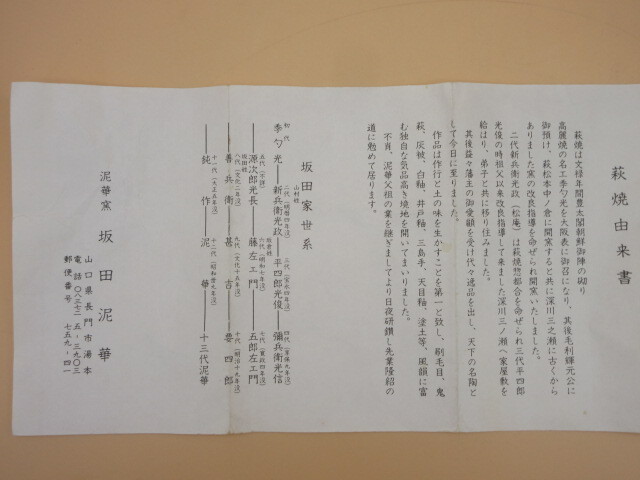 萩焼由来書
萩焼は文禄年間豊太閤朝鮮御陣の砌り
高麗焼の名工李勺光を大阪表に御召になり、其後毛利輝元公に
御預け、萩松本中ノ倉に開窯すると共に深川三之瀬に古くから
ありました窯の改良指導を命ぜられ開窯いたしました。
二代新兵衛光政（松庵）は萩焼惣都合を命ぜられ三代平四郎
光俊の時祖父以来改良指導して来ました深川三ノ瀬へ家屋敷を
給はり、弟子と共に移り住みました。
其後益々藩主の御愛顧を受け代々逸品を出し、天下の名陶と
して今日に至りました。
作品は作行と土の味を生かすことを第一と致し、刷毛目、鬼
萩、灰被、白釉、井戸釉、三島手、天目釉、塗土等、風韻に富
む独自な気品高き境地を開いてまいりました。
不肖、泥華父祖の業を継ぎましてより日夜研鑽し先業隆紹の
道に勉めて居ります。
坂田家世系
初代
李勺光
山村姓
二代（明暦四年没）
新兵衛光政
三代（宝永四年没）
平四郎光俊
四代（享保九年没）
彌兵衛光信
五代（不詳）
源次郎光長
坂倉姓
六代（明和七年没）
藤左ェ門
七代（寛政四年没）
五郎左ェ門
坂田姓
八代（文化二年没）
善兵衛
九代（文化十五年没）
甚吉
十代（明治十九年没）
要四郎
十一代（大正五年没）
純作
十二代（昭和廿九年没）
泥華
十三代泥華
泥華窯 坂田泥華
山口県長門市湯本
電話〇八三七二）五‐三九〇三
郵便番号 七五九‐四一